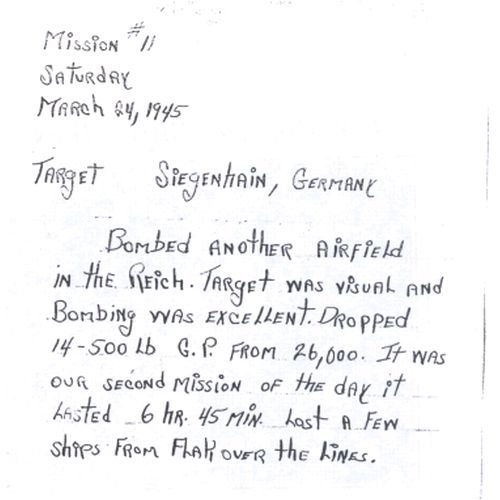 Mission #11
Saturday
March 24, 1945
Target Siegenhain, Germany
Bombed another airfield
in the Reich. Target was visual and
Bombing was excellent. Dropped
14-500 lb G.P. from 26,000. It was
our second mission of the day it
lasted 6 hr. 45 min. Lost a few
ships from flak over the lines.